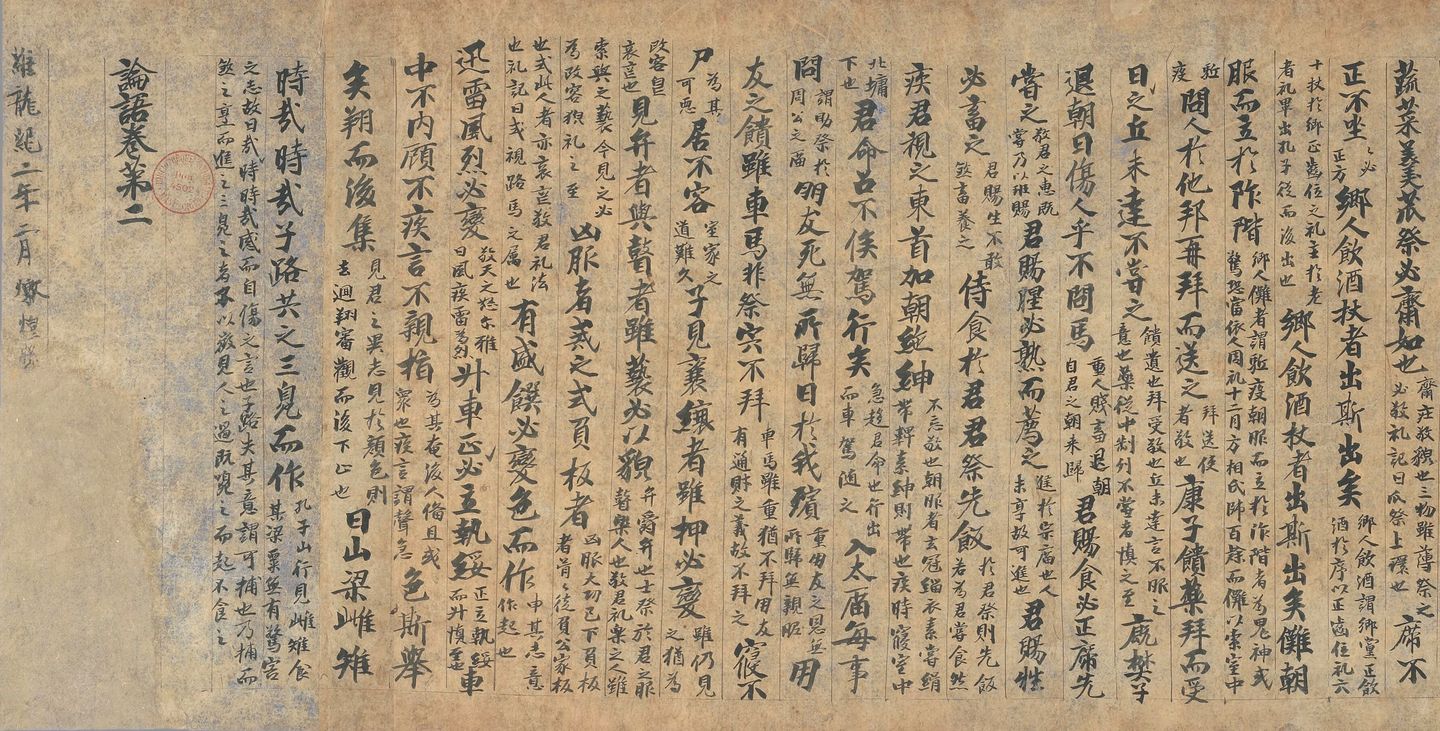 蔬菜羹苽祭必齋如也齋莊敬皃也三物雖薄祭之必敬礼記曰瓜祭上環也席不
正不坐必正方鄉人飲酒杖者出斯出矣鄉人飲酒謂鄉黨正飲酒於序以正齒位礼六
十杖於鄉正齒位之礼主於老者礼畢出孔子從而後出也鄉人飲酒杖者出斯出矣儺朝
服而立於阼階鄉人儺者謂駈疫朝服而立於阼階者為鬼神或驚恐當依人周礼十二月方相氏帥百隸而儺以索室中
駈疫問人於他邦再拜而送之拜送使者敬也康子饋藥拜而受
之曰丘未達不嘗之饋遺也拜受敬也丘未達言不服之意也藥從中制列不嘗者慎之至廐焚子
退朝曰傷人乎不問馬重人賤畜退朝自君之朝来歸君賜食必正席先
嘗之敬君之惠既嘗乃以班賜君賜腥必熟而薦之進於宗庿也人未享故可進也君賜牲
必畜之君賜生不敢煞畜養之侍食於君君祭先飯於君祭則先飯若為君嘗食然
疾君視之東首加朝絁紳不忘敬也朝服者玄冠緇衣素裳絹帶韠素紳則帶也疾時寢室中
北墉下也君命召不俟駕行矣急趍君命也行出而車駕随之入太庿每事
問謂助祭於周公之庿朋友死無所歸曰於我殯重朋友之恩無所歸無親昵朋
友之饋雖車馬非祭宍不拜車馬雖重猶不拜朋友有通財之義故不拜之寢不
尸為其可惡居不容室家之道難久子見齊縗者雖狎必變雖仍見之猶為
改容皃哀喪也見弁者與瞽者雖褻必以貌弁爵弁也士祭於君之服瞽樂人也敬君礼樂之人雖
索與之褻今見之必為改容皃礼之至凶服者式之式負板者凶服大功已下負板者肓徒負公家板
也式此人者亦哀喪敬君礼法也礼記曰式視路馬之属也有盛饌必變色而作申其志意作起也
迅雷風烈必變敬天之怒尔雅曰風疾雷為烈升車正必立執綏正立執綏車而升慎至也
中不内顧不疾言不親指為其奄後人俻且或衆也疾言謂聲急色斯舉
矣翔而後集見君之異志見於顔色則去迴翔審觀而後下止也曰山梁雌雉
時哉時哉子路共之三臭而作孔子山行見雌雉食其梁粟無有驚害
之志故曰哉時時哉感而自傷之言也子路失其意謂可捕也乃捕而煞之烹而進之三臭之者不以薇見人之過既嗅之而起不食之
論語卷第二
維龍紀二年二月燉煌縣